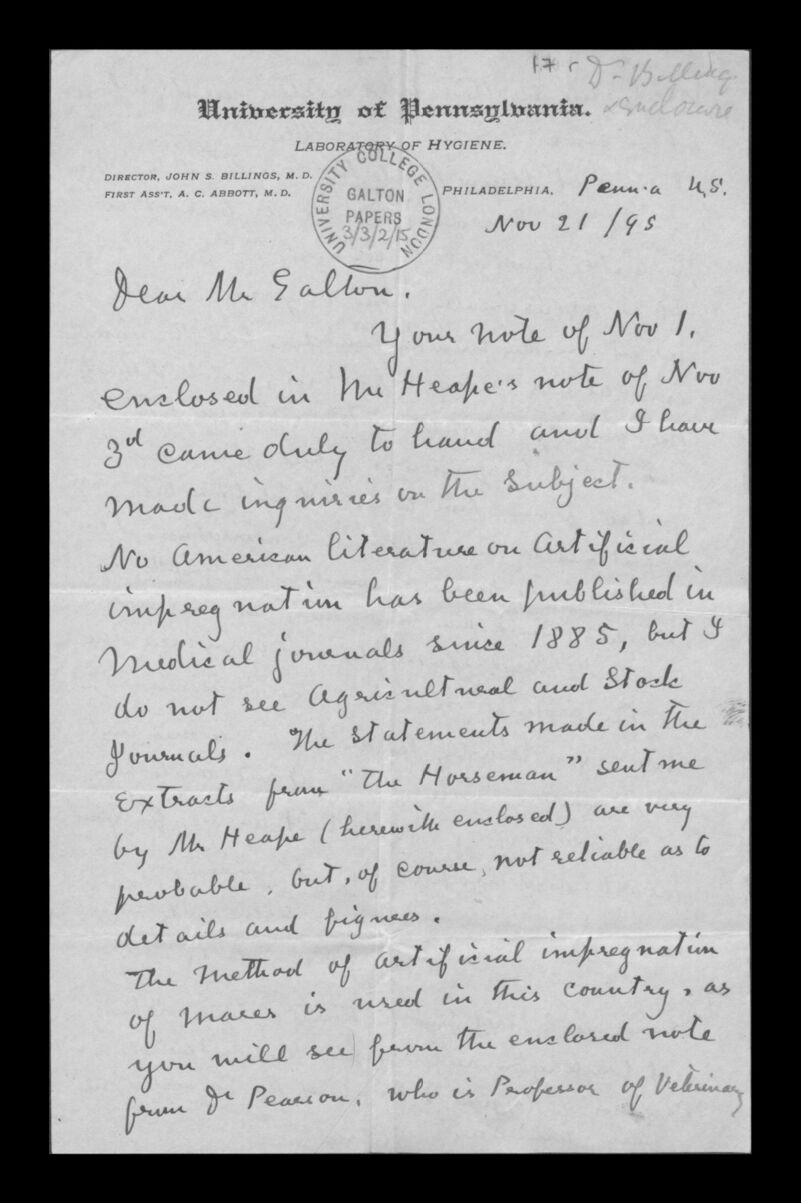 17 r Dr Billings
& enclosure
University of Pennsylvania.
LABORATORY OF HYGIENE.
DIRECTOR, JOHN S. BILLINGS, M. D.
FIRST ASS'T, A. C. ABBOTT, M. D.
UNIVERSITY COLLEGE LONDON
GALTON
PAPERS
3/3/2/15
PHILADELPHIA, Penn·a U.S.
Nov 21 /95
Dear Mr Galton.
Your note of Nov 1.
enclosed in Mr Heape's note of Nov
3d came duly to hand and I have
made inquiries on the subject.
No American literature on Artificial
impregnation has been published in
Medical journals since 1885, but I
do not see Agricultural and Stock
Journals. The statements made in the
Extracts from "The Horseman" sent me
by Mr Heape (herewith enclosed) are very
probable, but, of course, not reliable as to
details and figures.
The method of artificial impregnation
of mares is used in this country, as
you will see from the enclosed note
from Dr Pearson, who is Professor of Veterinary